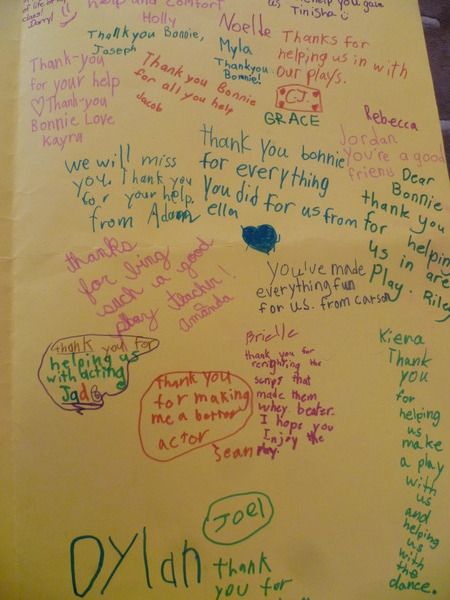 class!
Darryl
help and comfort
Holly
Noelle
help you gave
us Tinisha
Thankyou Bonnie,
Joseph
Myla
Thankyou
Bonnie!
Thanks for
helping us in with
our plays.
CJ.
GRACE
Thank-you
for your help
Thank-you
Bonnie Love
Kayra
Thank you Bonnie
for all you help
Jacob
Rebecca
Jordan
You're a good
friend
we will miss
you. Thank you
for your help.
from Adam
thank you bonnie
for everything
you did for us from
ella
Dear
Bonnie
thank you
for helping
us in are
play. Riley
thanks
for being
such a good
play teacher!
amanda
you've made
everything fun
for us. from carson
thank you for
helping us
with acting
Jade
thank you
for making
me a better
actor
Sean
Brielle
thank you for
rerighting the
scrips that
made them
whey beater.
I hope you
Enjoy the
Play.
Kiera
Thank
you
for
helping
us
make
a play
with
us
and
helping
us
with
the
dance.
Joel
Dylan
thank
you for